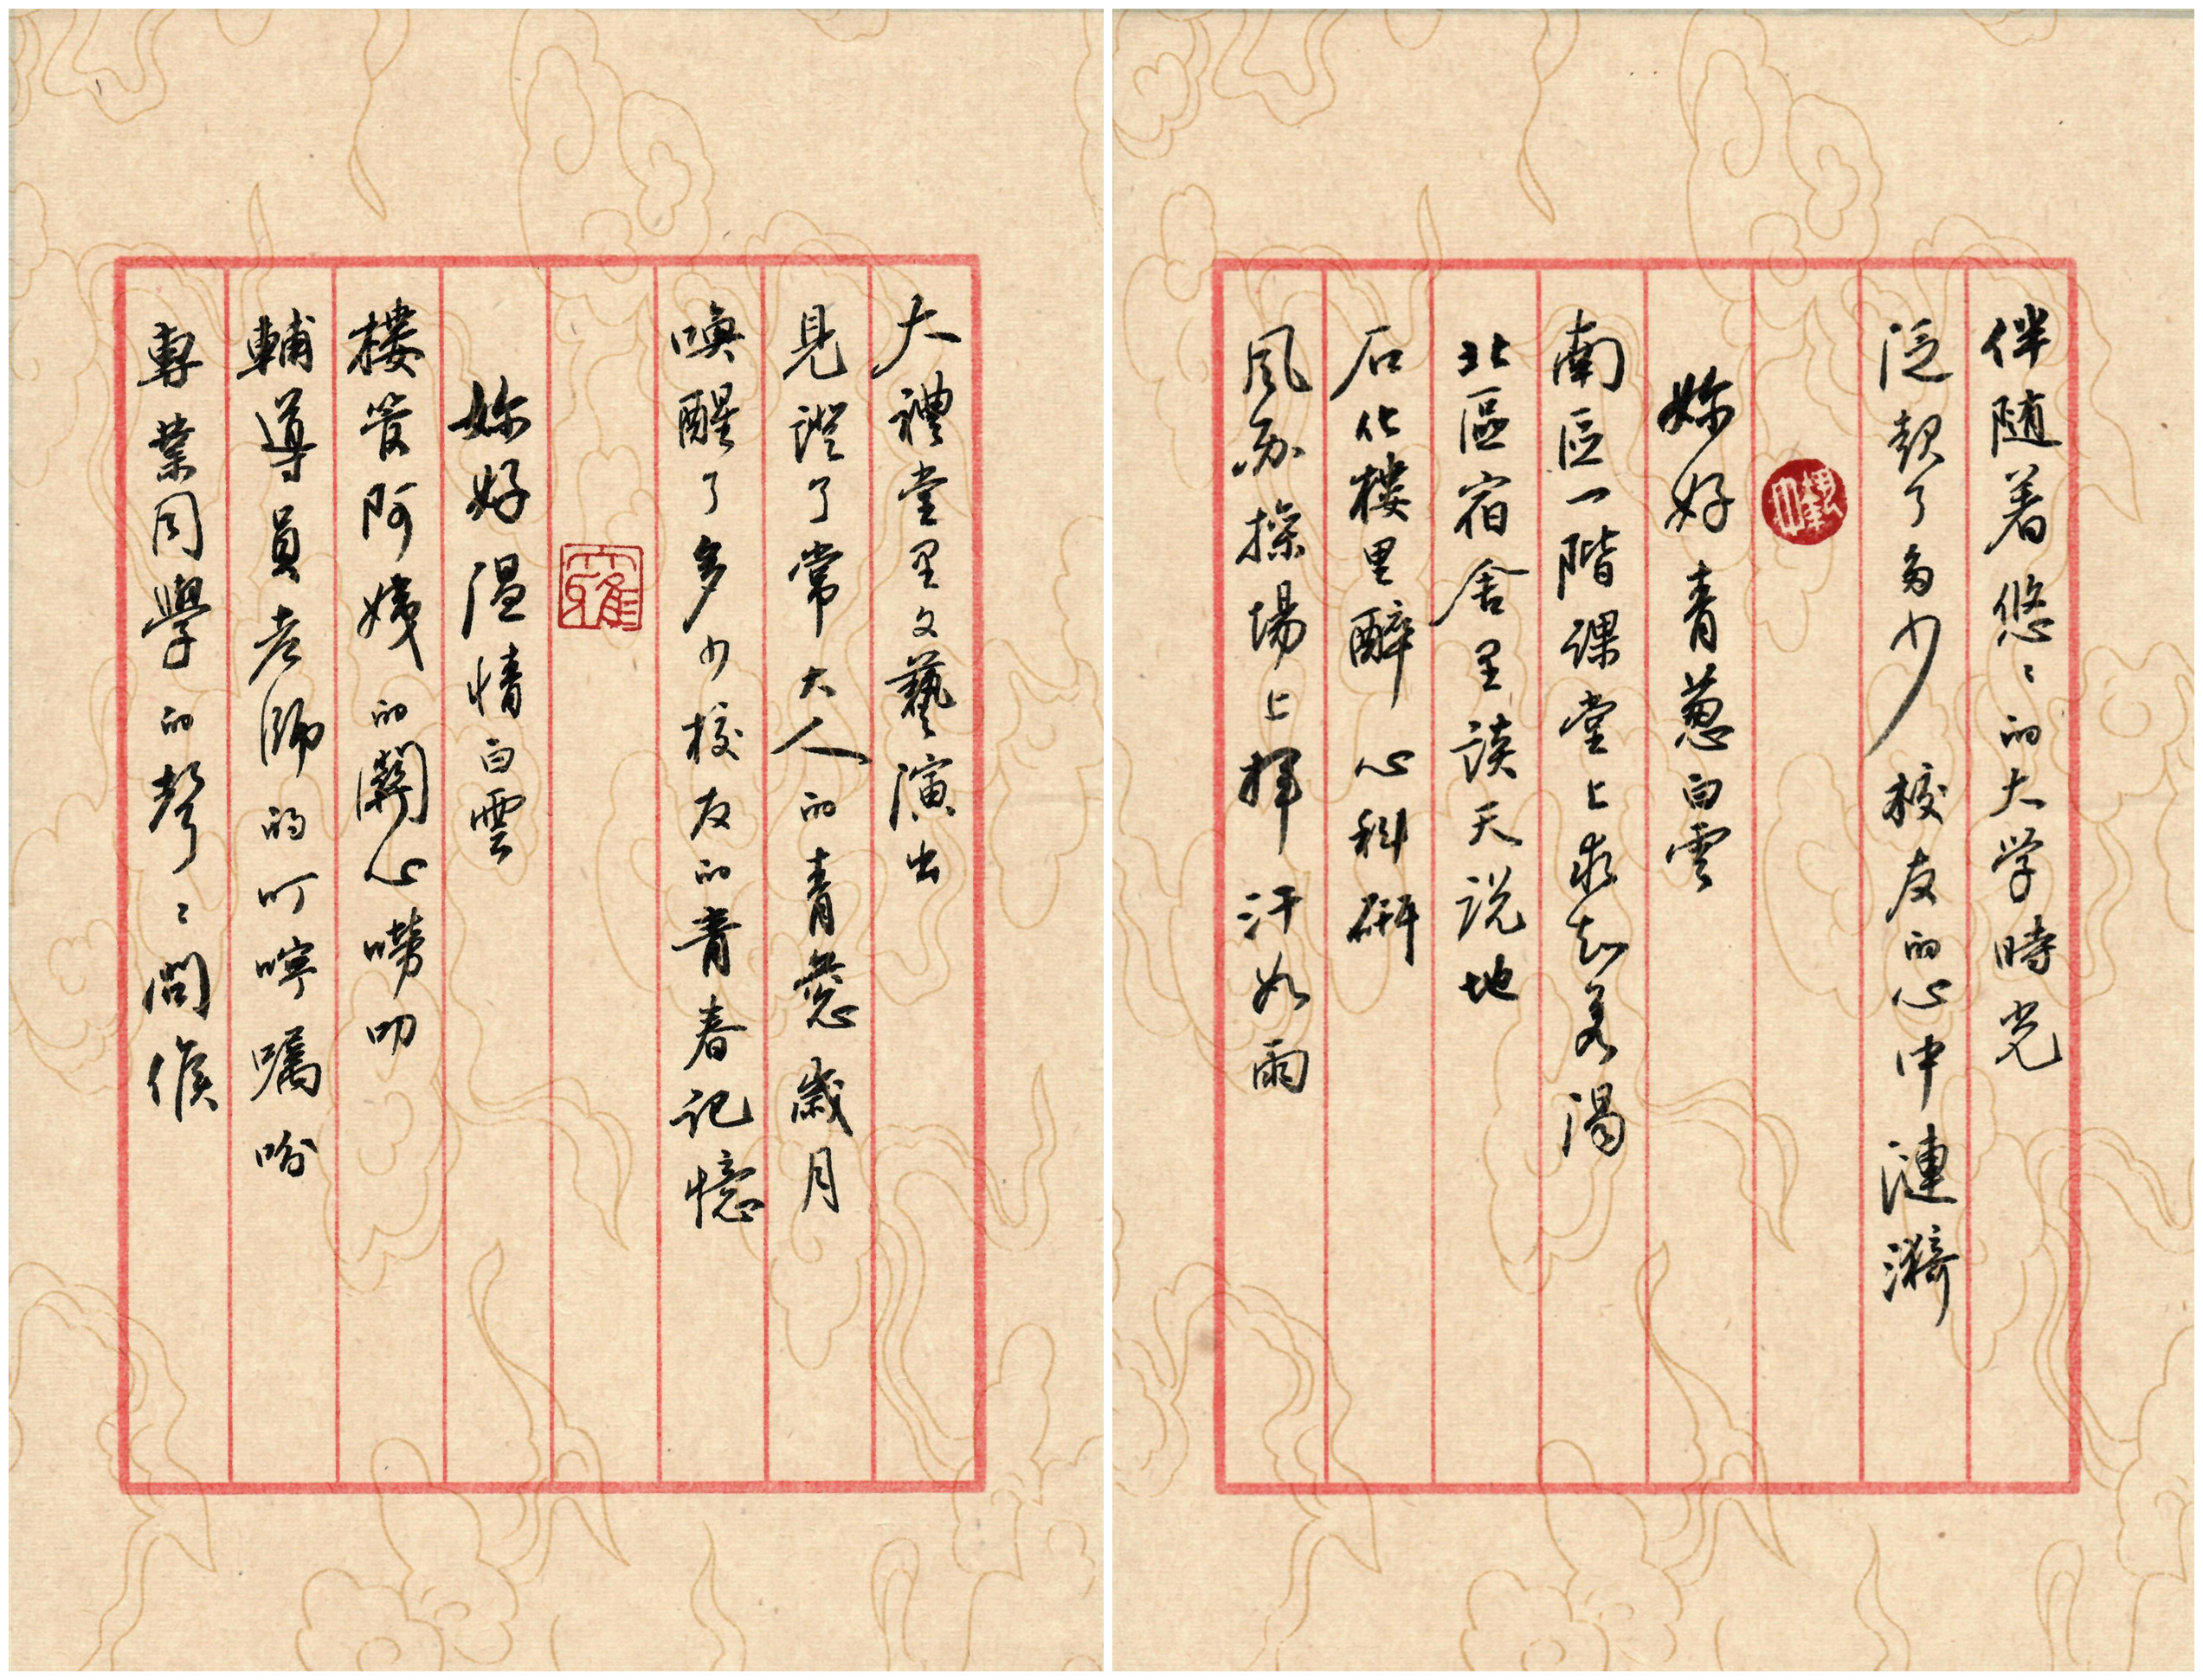 伴随着悠々的大学時光
泛起了多少校友的心中漣漪
妳好青葱白雲
南區一階課堂上求知若渴
北區宿舍里談天说地
石化樓里醉心科研
風雨操場上揮汗如雨
大禮堂里文藝演出
見證了常大人的青葱歲月
喚醒了多少校友的青春記憶
雅
妳好温情白雲
樓管阿姨的關心嘮叨
輔導員老師的叮嚀嘱吩
專業同學的聲々問候